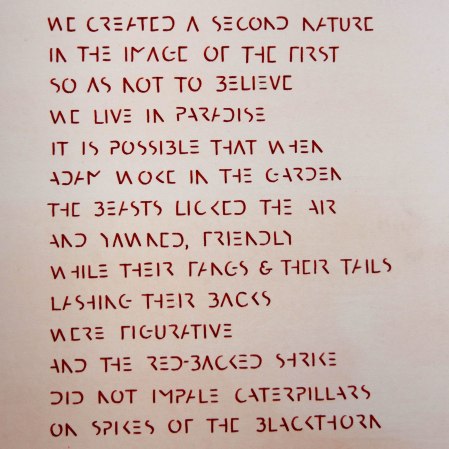 WE CREATED A SECOND NATURE
IN THE IMAGE OF THE FIRST
SO AS NOT TO BELIEVE
WE LIVE IN PARADISE
IT IS POSSIBLE THAT WHEN
ADAM WOKE IN THE GARDEN
THE BEASTS LICKED THE AIR
AND YAWNED, FRIENDLY
WHILE THEIR FANGS & THEIR TAILS
LASHING THEIR BACKS
WERE FIGURATIVE
AND THE RED-BACKED SHRIKE
DID NOT IMPALE CATERPILLARS
ON SPIKES OF THE BLACKTHORN